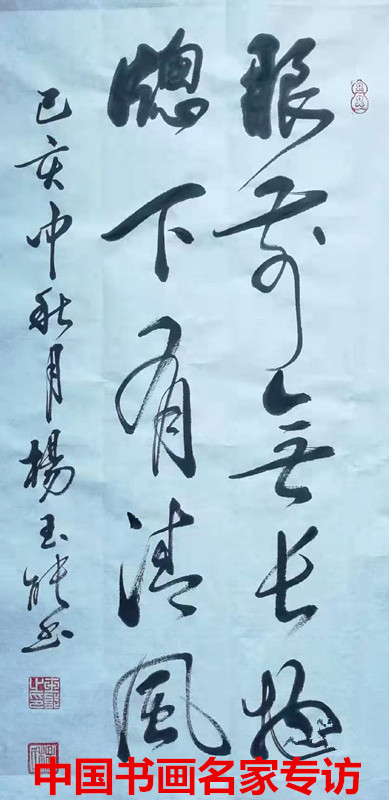 眼前無长物
窓下有清風
己亥中秋月楊玉能书
中国书画名家专访